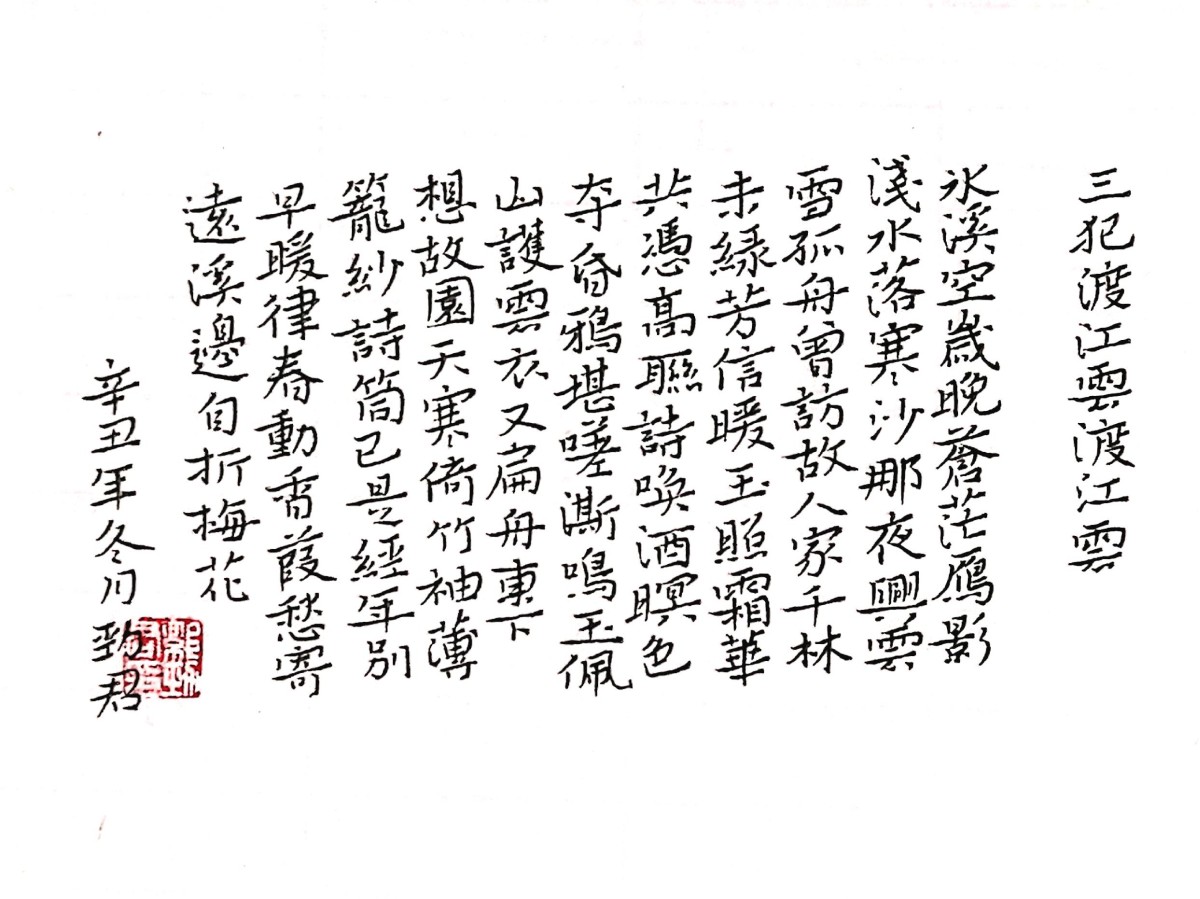 三犯渡江雲渡江雲
氷溪空歲晚蒼茫鴈影
淺水落寒沙那夜興雲
雪孤舟曾訪故人家千林
未緑芳信暖玉照霜華
共憑高聯詩喚酒暝色
夺昏鴉堪嗟澌鳴玉佩
山護雲衣又扁舟東下
想故園天寒倚竹袖薄
籠紗詩筒已是經年別
早暖律春動香葭愁寄
遠溪邊自折梅花
辛丑年冬月勁君